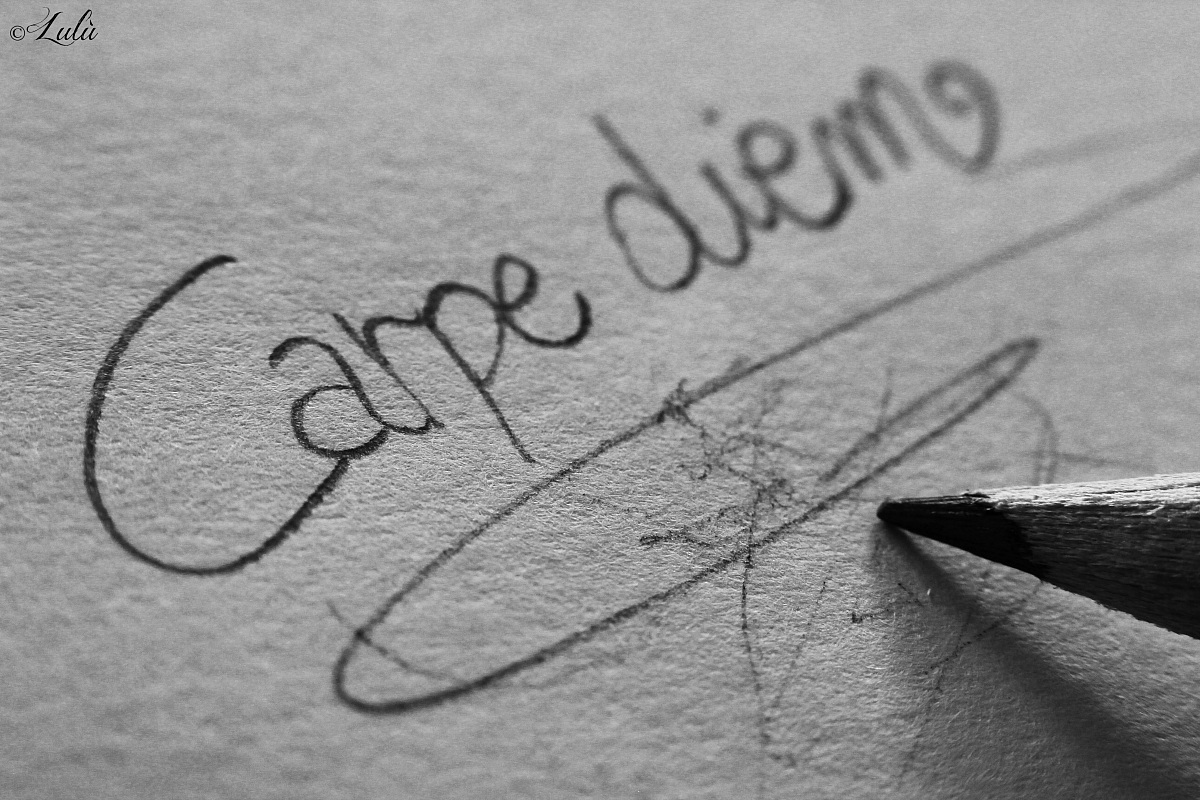 ©Lulù
Carpe diem